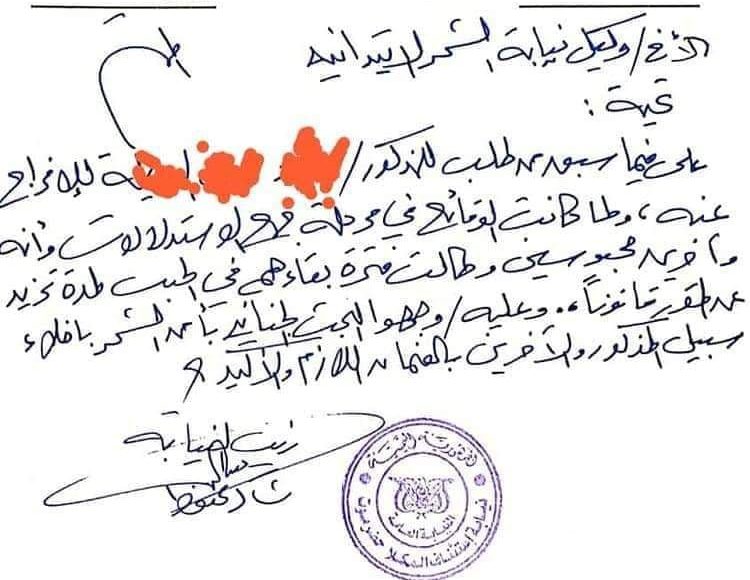 الأخ / وكيل نيابة الشحر الابتدائية
تحية :
على فيما سبق من طلب المذكور / للإفراج
عنه ، ولما كانت الوقائع في مرحلة جمع الاستدلالات وأنه
وآخرين محبوسين وطالت فترة بقاءهم في الحبس لمدة تزيد
عن المقرر قانوناً ،، وعليه / وجهوا البحث الجنائي بأمن الشحر باخلاء
سبيل المذكور والآخرين بالضمان اللازم والأكيد
رئيس النيابة
شاكر محفوظ
الجمهورية اليمنية
النيابة العامة
نيابة استئناف المكلا حضرموت